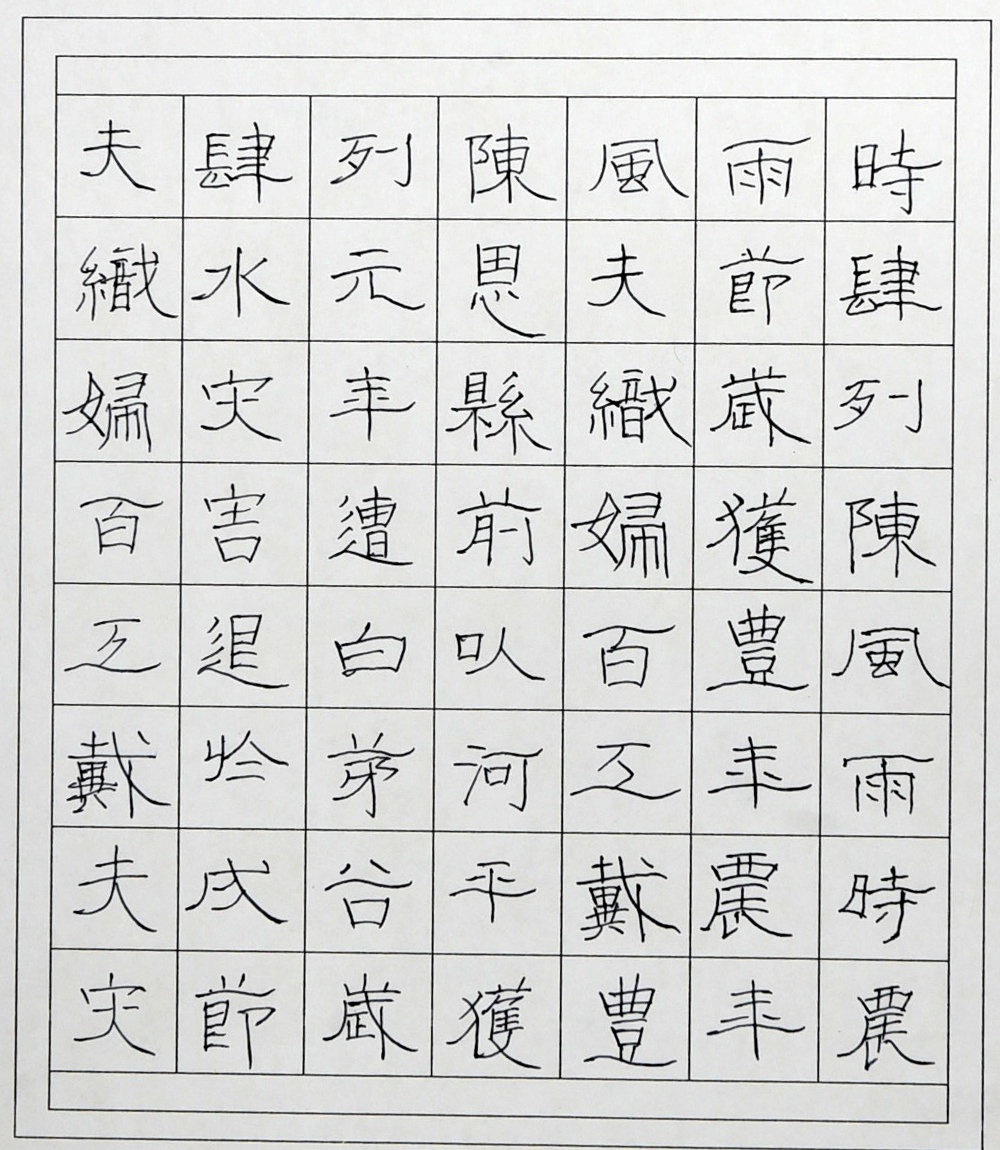 時肆列陳風雨時農
雨節歲獲豐年農年
風夫織婦百工戴豐
陳恩縣前以河平獲
列元年遭白茅谷歲
肆水災害退於戌節
夫織婦百工戴夫災